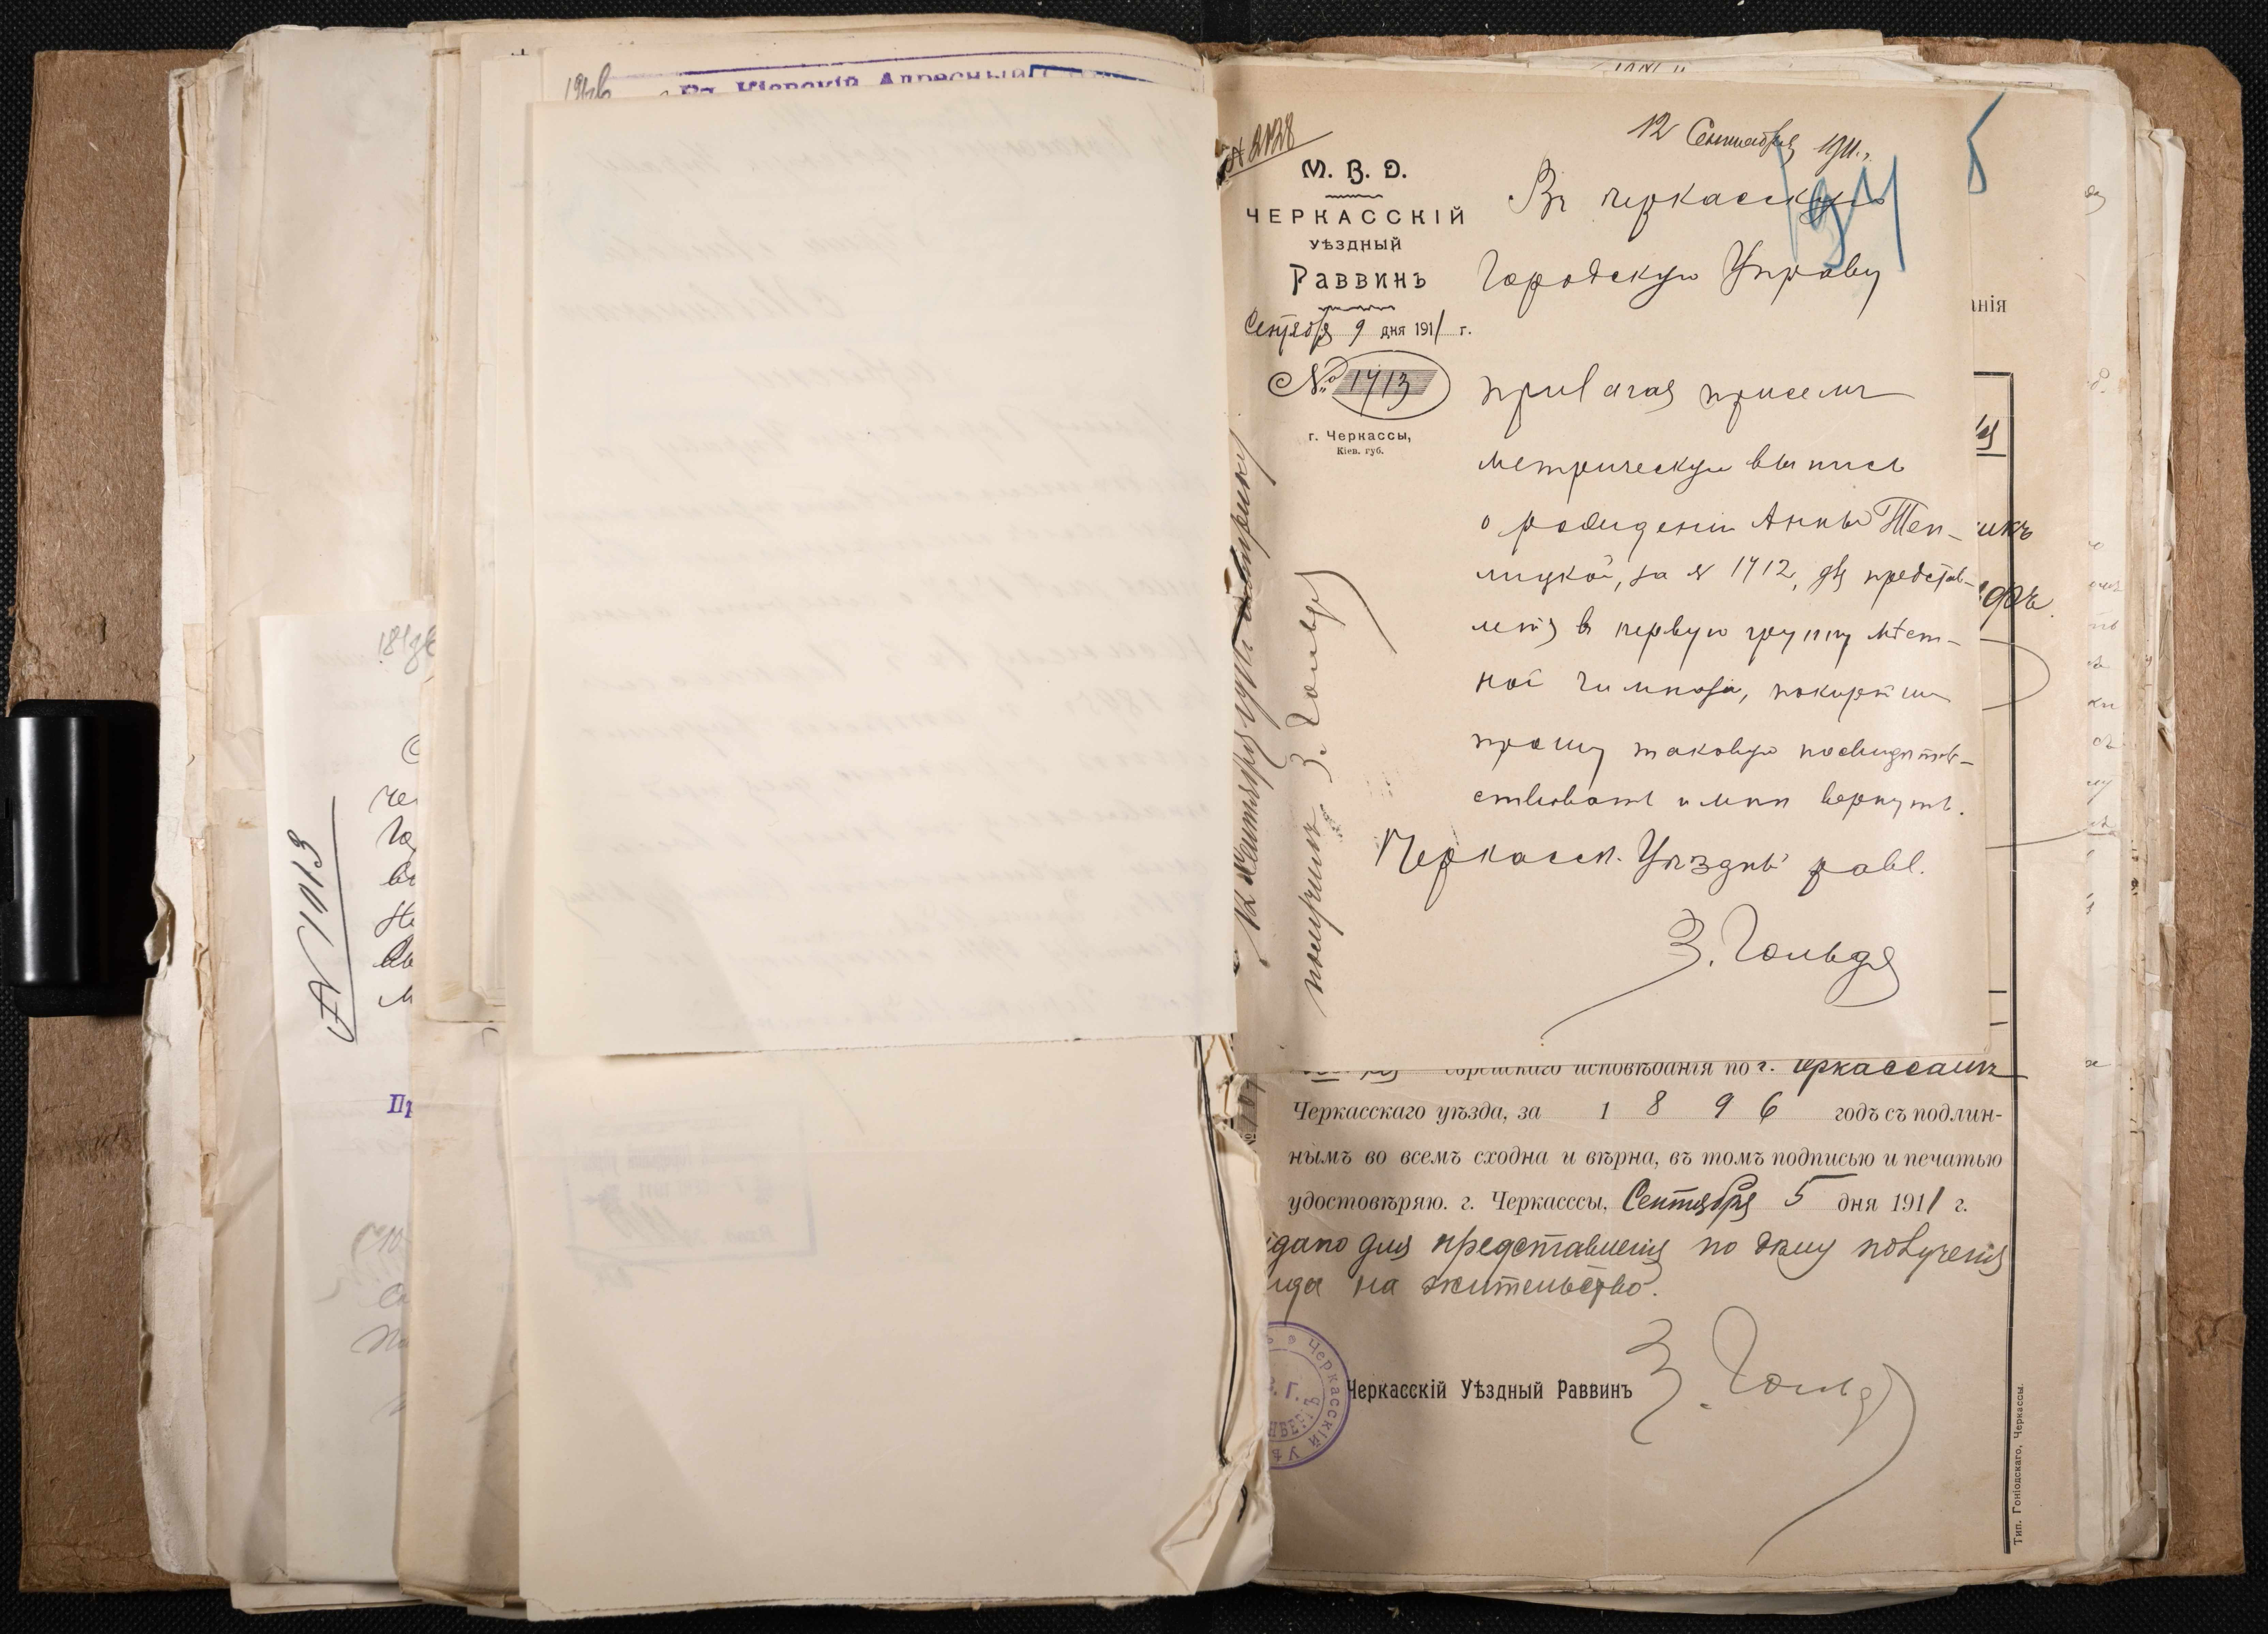 Въ Кіевскій Адресный
№ 1013
№ 2128
12 Сентября 1911 г.
М. В. Д.
ЧЕРКАССКІЙ
УѢЗДНЫЙ
Раввинъ
Сентября 9 дня 1911 г.
№ 1713
г. Черкассы,
Кіев. губ.
Въ Черкасскую
Городскую Управу
Прилагая присемъ
метрическую выпись
о рожденіи Анны Теп-
лицкой, за № 1712, для представ-
ленія въ первую группу мѣст-
ной гимназіи, покорнѣйше
прошу таковую посвидѣтель-
ствовать и мнѣ вернуть.
Черкасск. Уѣздный равв.
З. Гольд
12 Сентября 1911 г. метрику
получилъ З. Гольд
анія
еврейскаго исповѣданія по г. Черкассамъ
Черкасскаго уѣзда, за 1896 годъ съ подлин-
нымъ во всемъ сходна и вѣрна, въ томъ подписью и печатью
удостовѣряю. г. Черкасссы, Сентября 5 дня 1911 г.
дано для представленія по дѣлу полученія
ида на жительство.
Черкасскій Уѣздный Раввинъ З. Гольд
Черкасскій Уѣ
Тип. Гоніодскаго, Черкассы.